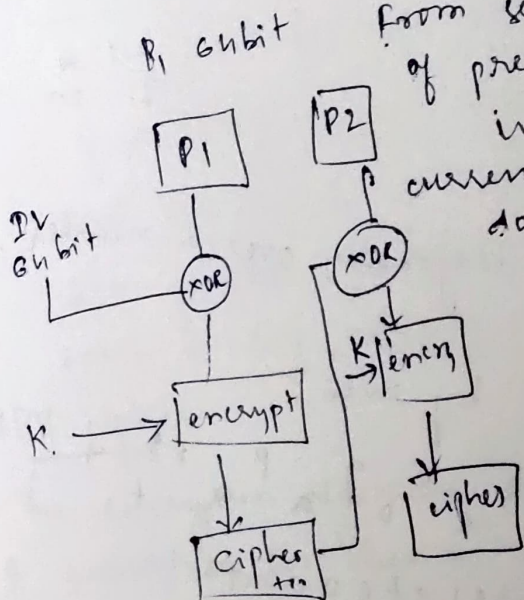 B1 64bit
From
of pre
in
curren
P1
P2
IV
64bit
XOR
XOR
K
encrypt
K
encry
cipher
cipher